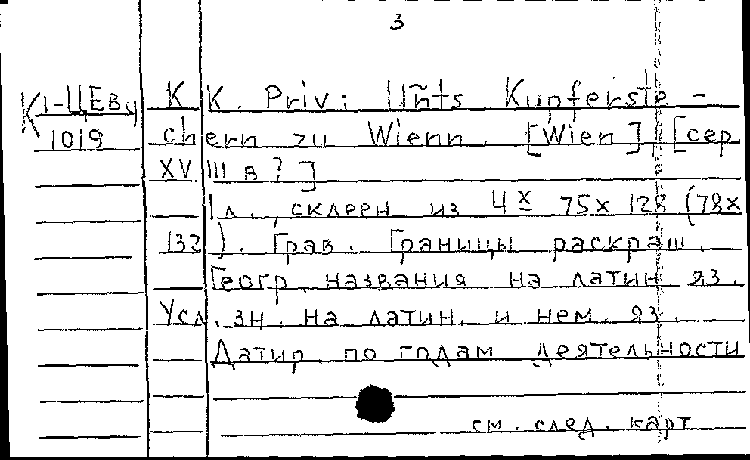 3
К 1-ЦЕв4
1019
K. K. Priv: Uñ̃ts Kupferste-
chern zu Wienn. [Wien] [сер
XVIII в?]
1 л., склеен из 4х 75х128 (78х
132). Грав. Границы раскраш.
Геогр. названия на латин яз.
Усл. зн. на латин. и нем. яз.
Датир. по годам деятельности
см. след. карт